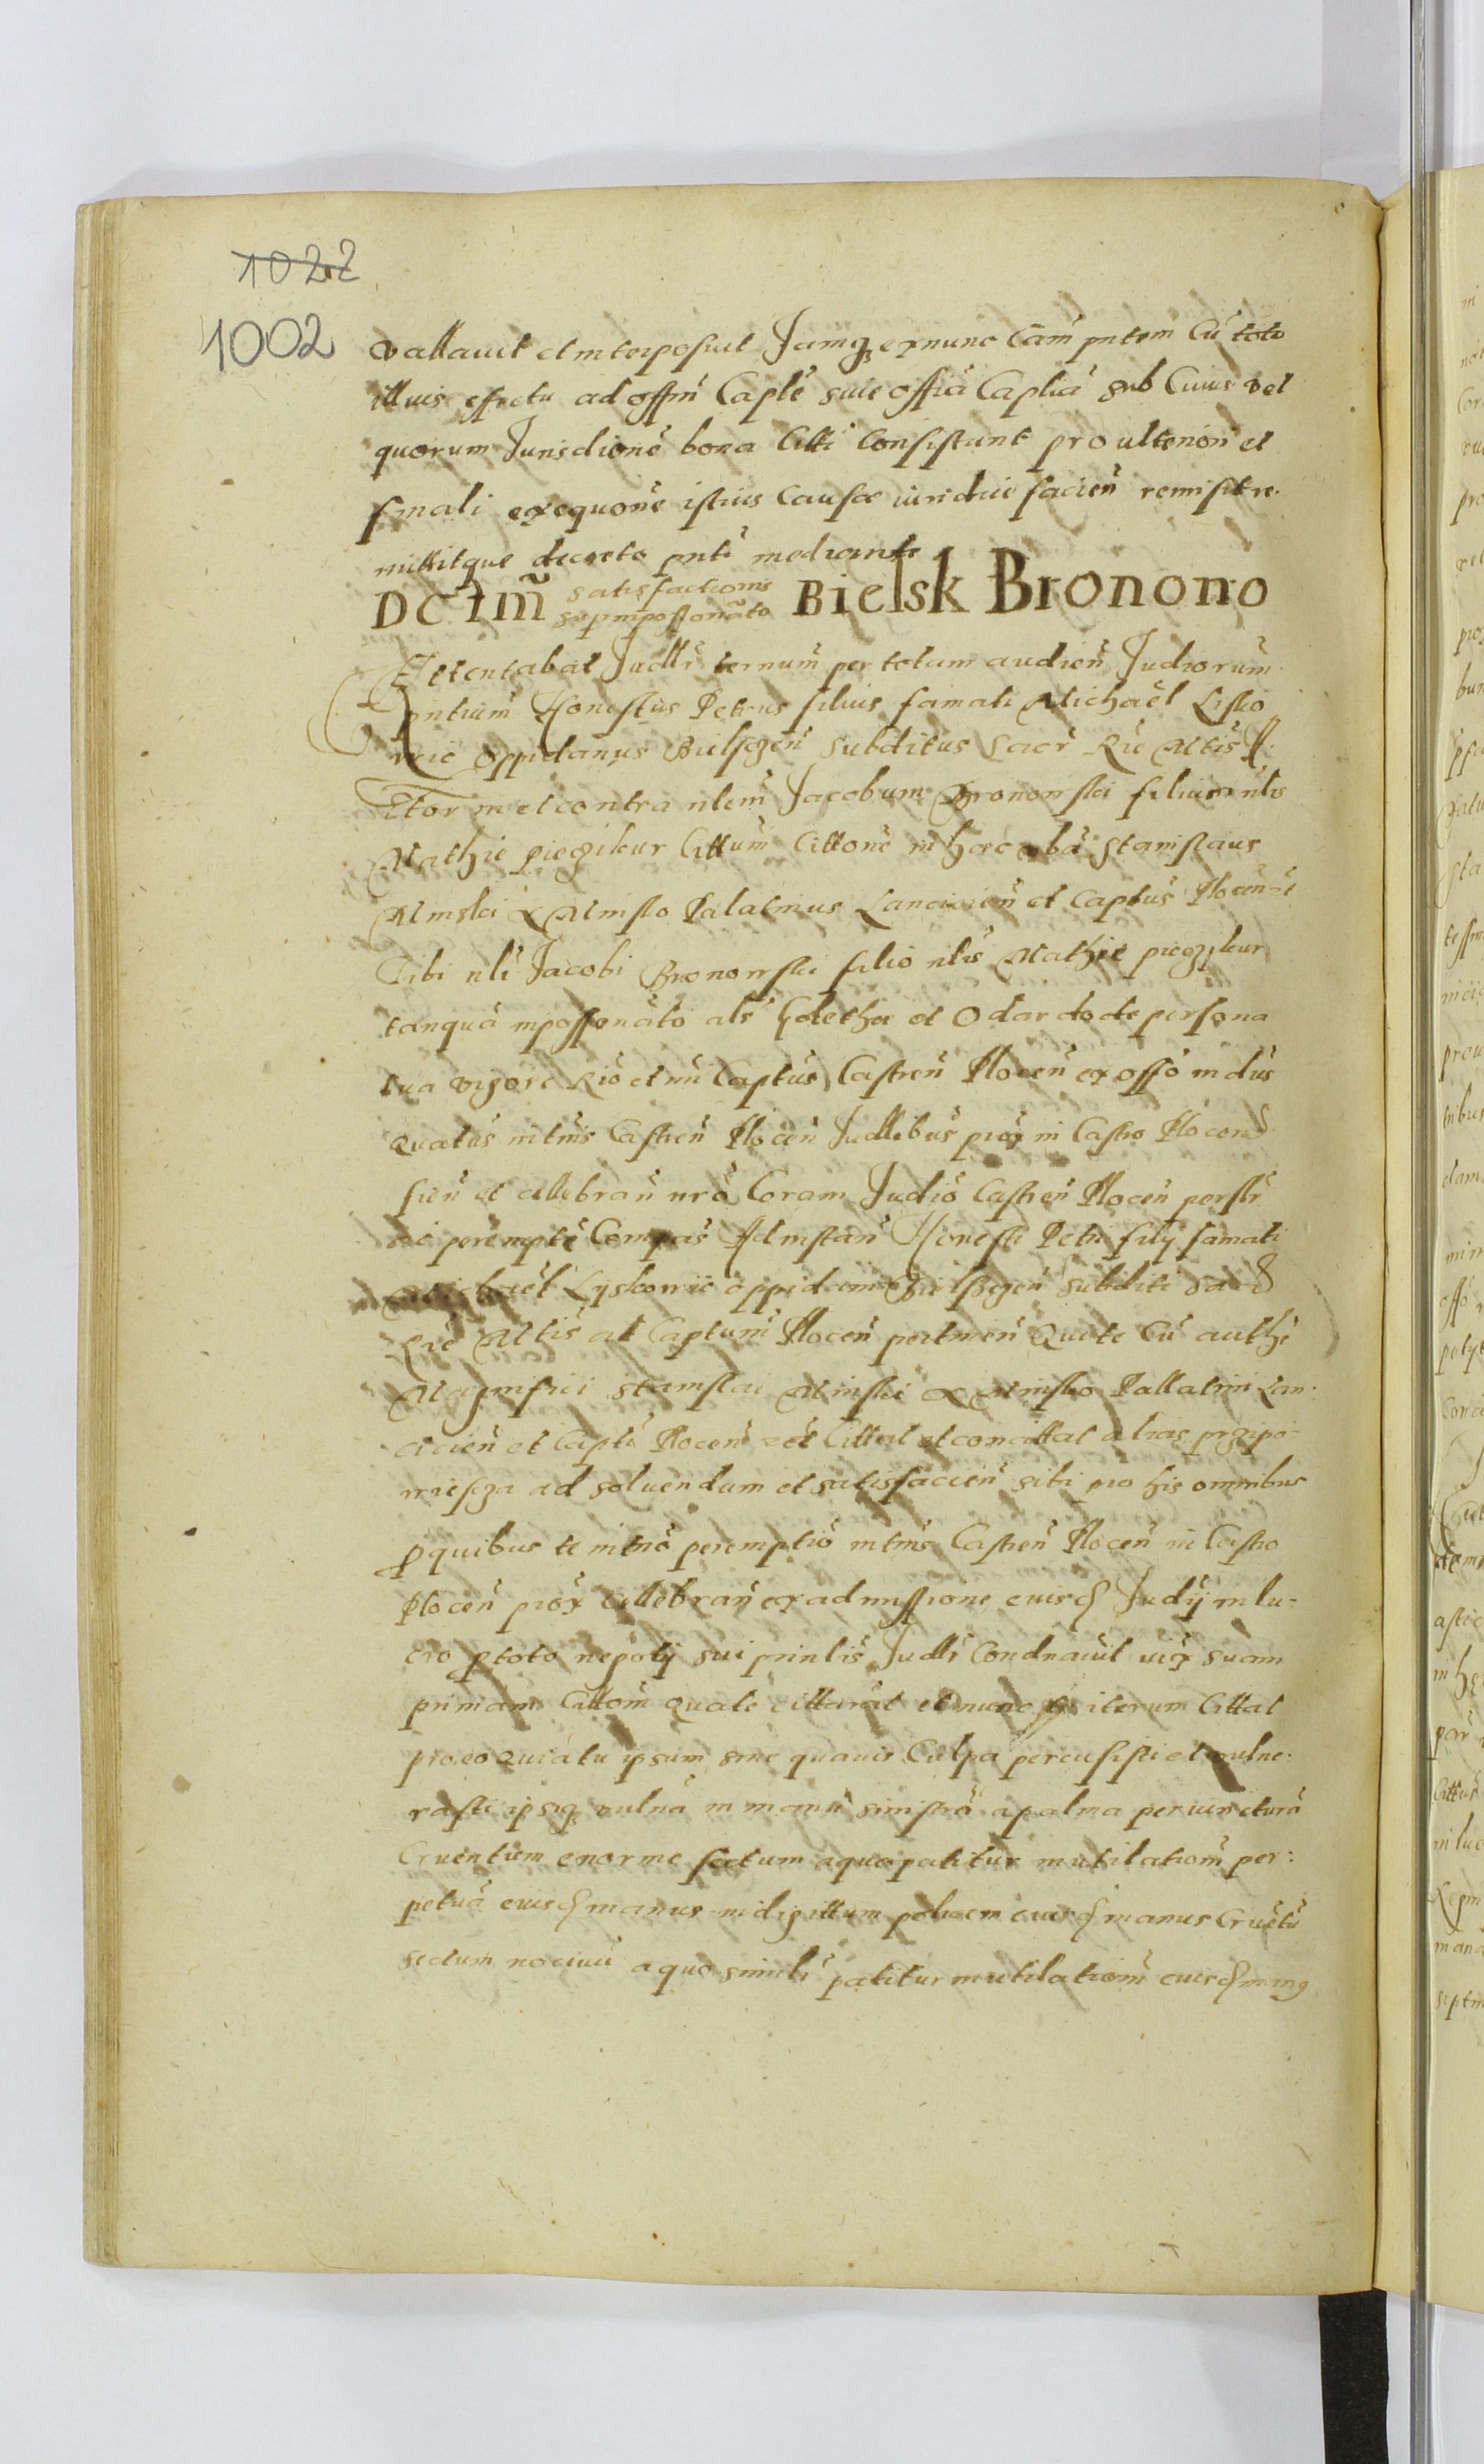 1022
1002
vallavit et interposuit Jamq₃ exnunc Cam̃ pntem Cũ toto
illius effectu ad offm̃ Caple͂ siue offia͂ Caplia͂ sub Cuius vel
quorum Jurisdione͂ bona Citti Consistunt pro ulterion͂ et
finali exequone͂ istius Causæ iuridice facien͂ remisit re-
mittitque decreto pnti͂ mediante
DCtm̃ satisfactionis Bielsk Bronono
sup impossionato
Attentabat Judlr͂ ternum͂ per totam audien͂ Judiorum͂
pntium͂ Honestus Petrus filius famati Michaël Lisko
wic oppidanus Bielsczen͂ subditus Sacr͂ Rie͂ Mtis͂ A
Ctor in et contra nlem͂ Jacobum Bronowski filium nlis
Mathie piegzikur Cittum͂ Cittone͂ in hæc vba͂ Stanislaus
Minski & Minsko Palatinus Lancicien͂ et Captus͂ Plocen͂ et
Tibi nli͂ Jacobi Bronowski filio nlis͂ Mathie piegzikur
tanqua͂ impossonato als͂ Goletha et Odardo de persona
tua vigore Rio͂ et mi͂ Captus͂ Castren͂ Plocen͂ ex offo͂ indus͂
quatus͂ in tmis͂ Castren͂ Plocen͂ Judlibus͂ prox͂ in Castro Plocen͂
fien͂ et cellebran͂ nra͂ Coram Judio͂ Castren͂ Plocen͂ perslr͂
ac perempte͂ Compas͂ Ad instan͂ Honesti Petri filij famati
Michaël Lyskowic oppidani Bielsczen͂ subditi Sacr͂
Rie͂ Mtis͂ at Captum͂ Plocen͂ pertinen͂ Qui te Cũ authe͂
Magnifici Stanislai Minski & Minsko Pallatini Lan-
cicien͂ et Capti͂ Plocen͂ Cittat et concittat alias przipo-
wiescza ad soluendum et satisfacien͂ sibi pro his omnibus
p quibus te in tno͂ peremptio͂ in tmis͂ Castren͂ Plocen͂ in Castro
Plocen͂ prox͂ Cellebran͂ ex admissione eiusd Judij in lu-
cro p toto nepotij sui prinlis͂ Judlr͂ Condnauit suam
primam Cittom͂ quale͂ cittarat et nunc iterum Cittat
pro eo quia tu ipsum sine quauis Culpa percussisti et vulne-
rasti ipsiq₃ vulna͂ in manu͂ sinistra͂ a palma per iunctura͂
Cruentum enorme sectum a quo patitur mutilatiom͂ per-
petua͂ eiusd manus in digittum policem eiusd manus Cruetu͂
sectum nociuu͂ a quo simili͂ patitur mutilatiom͂ eiusd mang